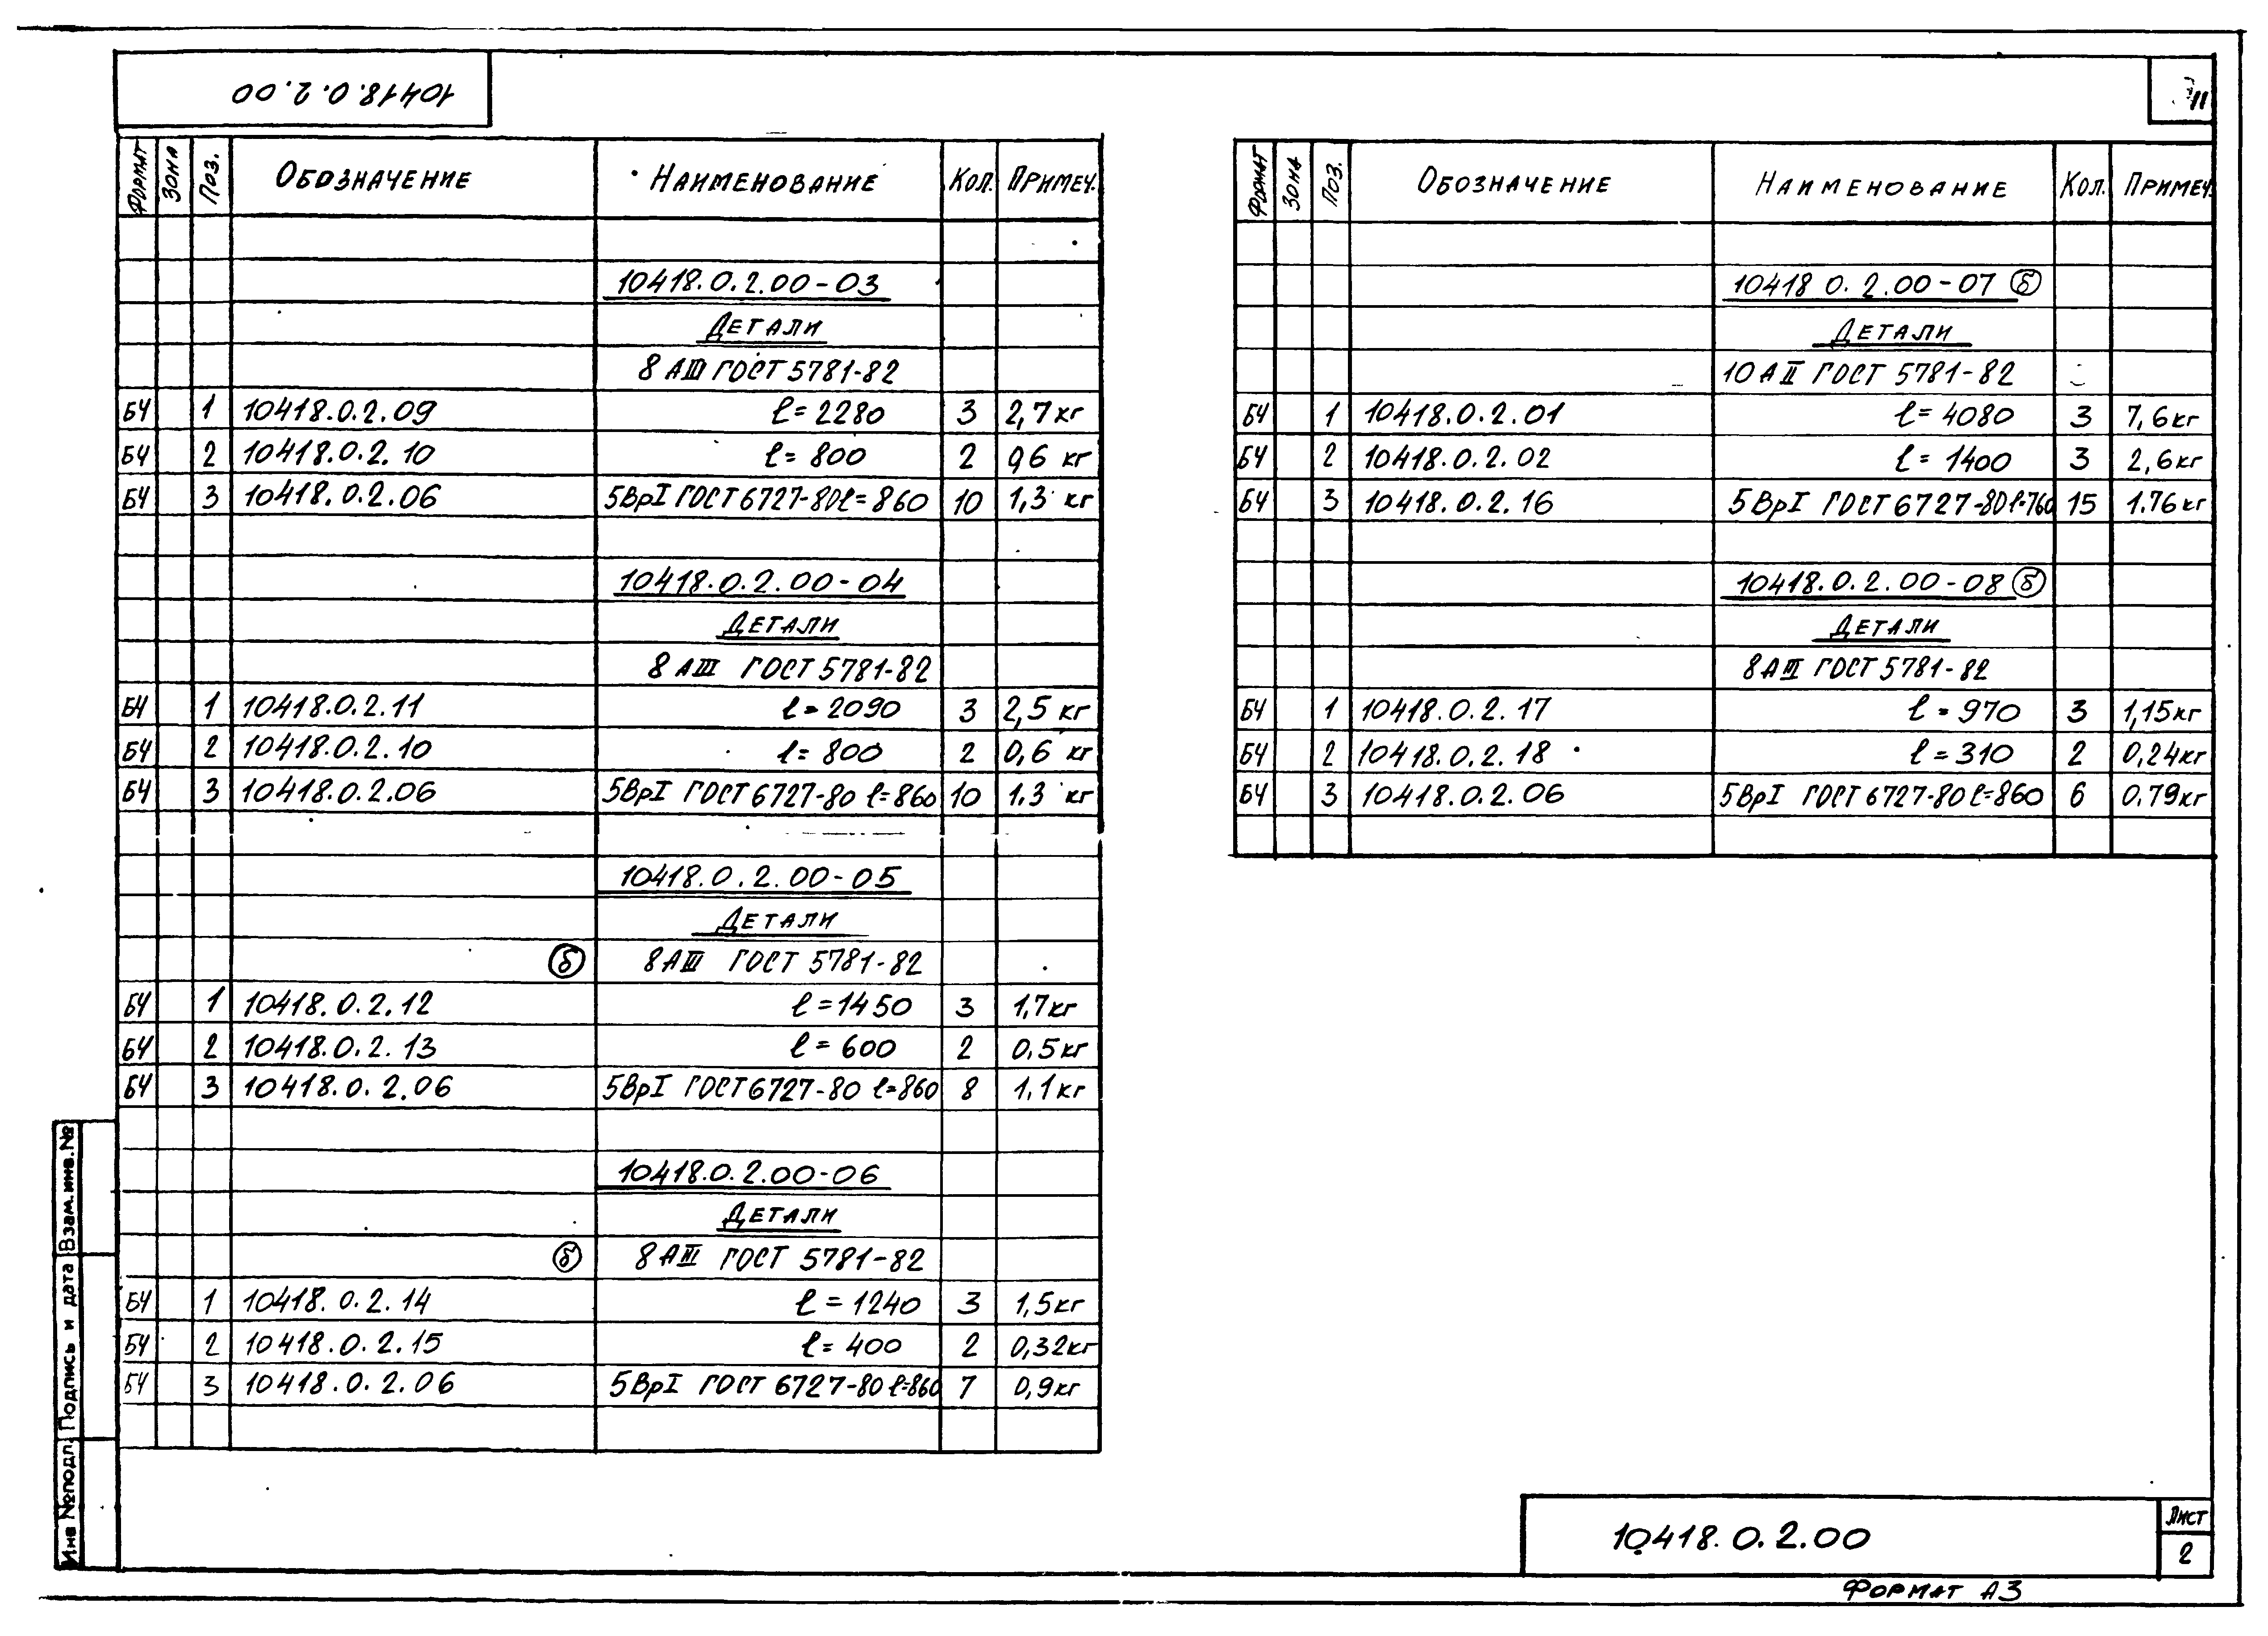 10418.0.2.00
11
Формат Зона Поз. Обозначение Наименование Кол. Примеч.
10418.0.2.00-03
Детали
8 АIII ГОСТ 5781-82
БЧ 1 10418.0.2.09 ℓ=2280 3 2,7кг
БЧ 2 10418.0.2.10 ℓ=800 2 0,6 кг
БЧ 3 10418.0.2.06 5ВрI ГОСТ 6727-80 ℓ=860 10 1,3 кг
10418.0.2.00-04
Детали
8 АIII ГОСТ 5781-82
БЧ 1 10418.0.2.11 ℓ=2090 3 2,5 кг
БЧ 2 10418.0.2.10 ℓ=800 2 0,6 кг
БЧ 3 10418.0.2.06 5ВрI ГОСТ 6727-80 ℓ=860 10 1.3 кг
10418.0.2.00-05
Детали
б 8АIII ГОСТ 5781-82
БЧ 1 10418.0.2.12 ℓ=1450 3 1,7кг
БЧ 2 10418.0.2.13 ℓ=600 2 0,5кг
БЧ 3 10418.0.2.06 5ВрI ГОСТ 6727-80 ℓ=860 8 1,1кг
10418.0.2.00-06
Детали
б 8АIII ГОСТ 5781-82
БЧ 1 10418.0.2.14 ℓ=1240 3 1,5кг
БЧ 2 10418.0.2.15 ℓ=400 2 0,32кг
БЧ 3 10418.0.2.06 5ВрI ГОСТ 6727-80 ℓ=860 7 0,9кг
Формат Зона Поз. Обозначение Наименование Кол. Примеч.
10418 0.2.00-07 б
Детали
10 АII ГОСТ 5781-82
БЧ 1 10418.0.2.01 ℓ=4080 3 7,6кг
БЧ 2 10418.0.2.02 ℓ=1400 3 2,6кг
БЧ 3 10418.0.2.16 5ВрI ГОСТ 6727-80 ℓ=760 15 1.76кг
10418.0.2.00-08 б
Детали
8АIII ГОСТ 5781-82
БЧ 1 10418.0.2.17 ℓ=970 3 1,15кг
БЧ 2 10418.0.2.18 ℓ=310 2 0,24кг
БЧ 3 10418.0.2.06 5ВрI ГОСТ 6727-80 ℓ=860 6 0.79кг
Инв №подл. Подпись и дата Взам.инв.№
10418.0.2.00
Лист
2
Формат А3